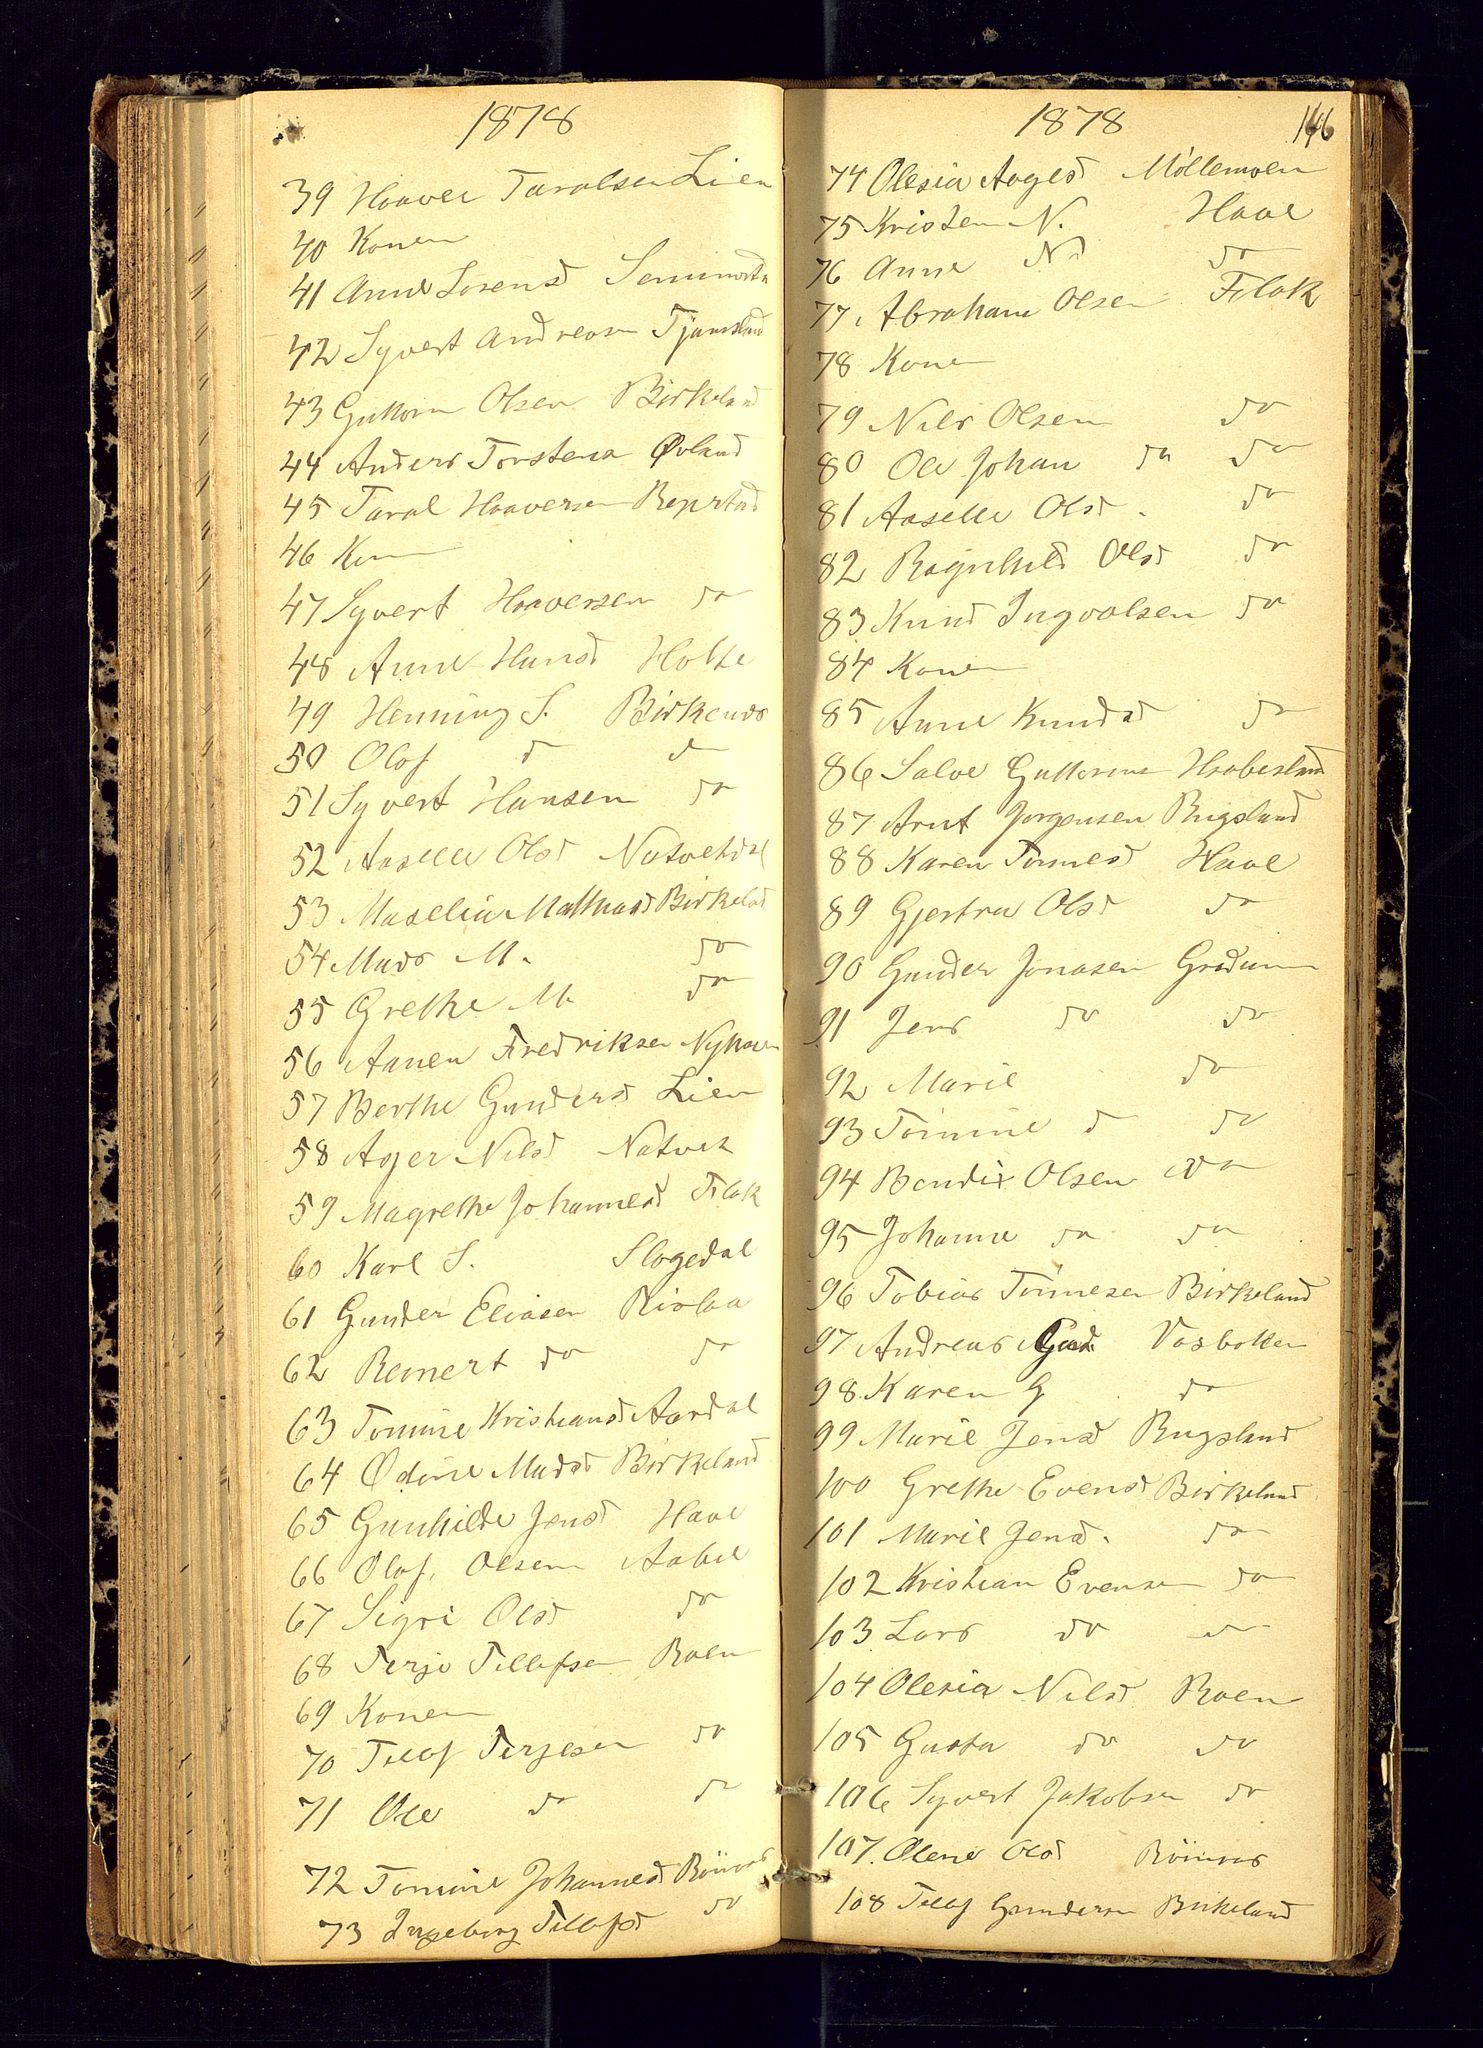 1878
39 Haaver Taralsen Lien
40 Konen
41 Anne Sorensd
42 Syvert Andreasen Tjomsland
43 Guttorm Olsen Birkeland
44 Anders Torstens Øvland
45 Taral Haaversen Repstad
46 Kon
47 Syvert Haaversen do
48 Anne Hansd Holte
49 Henning S. Birkenes
50 Olaf d do
51 Syvert Hansen do
52 Aaselle Olsd Natvetdal
53 Maselia Mathiasd Birkelad
54 Mads M. do
55 Grethe M. do
56 Aanen Fredriksen
57 Berthe Gundersd Lien
58 Ager Nilsd Natvet
59 Magrethe Johannesd Flak
60 Karl S. Slogedal
61 Gunder Eliasen Rislaa
62 Reinert do do
63 Tomine Kristiansd Aardal
64 Odine Madsd Birkeland
65 Gunhilde Jensd Haae
66 Olaf. Olsen Aabel
67 Sigri Olsd do
68 Terje Tellefsen Roen
69 Konen
70 Tellef Terjesen do
71 Ole do do
72 Tomine Johannesd
73 Ingeborg Tellefsd do
1878 146
74 Olesia Aagesd Möllemoen
75 Kristen N. Haae
76 Anne Nd do
77 Abraham Olsen Flak
78 Konen
79 Nils Olsen do
80 Ole Johan do do
81 Aaselle Olsd. do
82 Ragnhild Olsd do
83 Knud Ingvalsen do
84 Konen
85 Anne Knudsd do
86 Salve Guttormsen Haabesland
87 Arnt Jorgensen Rugsland
88 Karen Tönnesd Haae
89 Gjertru Olsd do
90 Gunder Jonasen
91 Jens do do
92 Marie do
93 Tomine d do
94 Bendix Olsen do
95 Johanne do do
96 Tobias Tönnesen Birkeland
97 Andreas Vasbotten
98. Karen G do
99 Marie Jensd Rugsland
100 Grethe Evensd Birkeland
101 Marie Jensd. do
102 Kristian Evensen do
103 Lars do do
104 Olesia Nilsd Roen
105 Gusta do do
106 Syvert Jakobsen do
107. Olene Olsd
108 Tellef Gundersen Birkeland